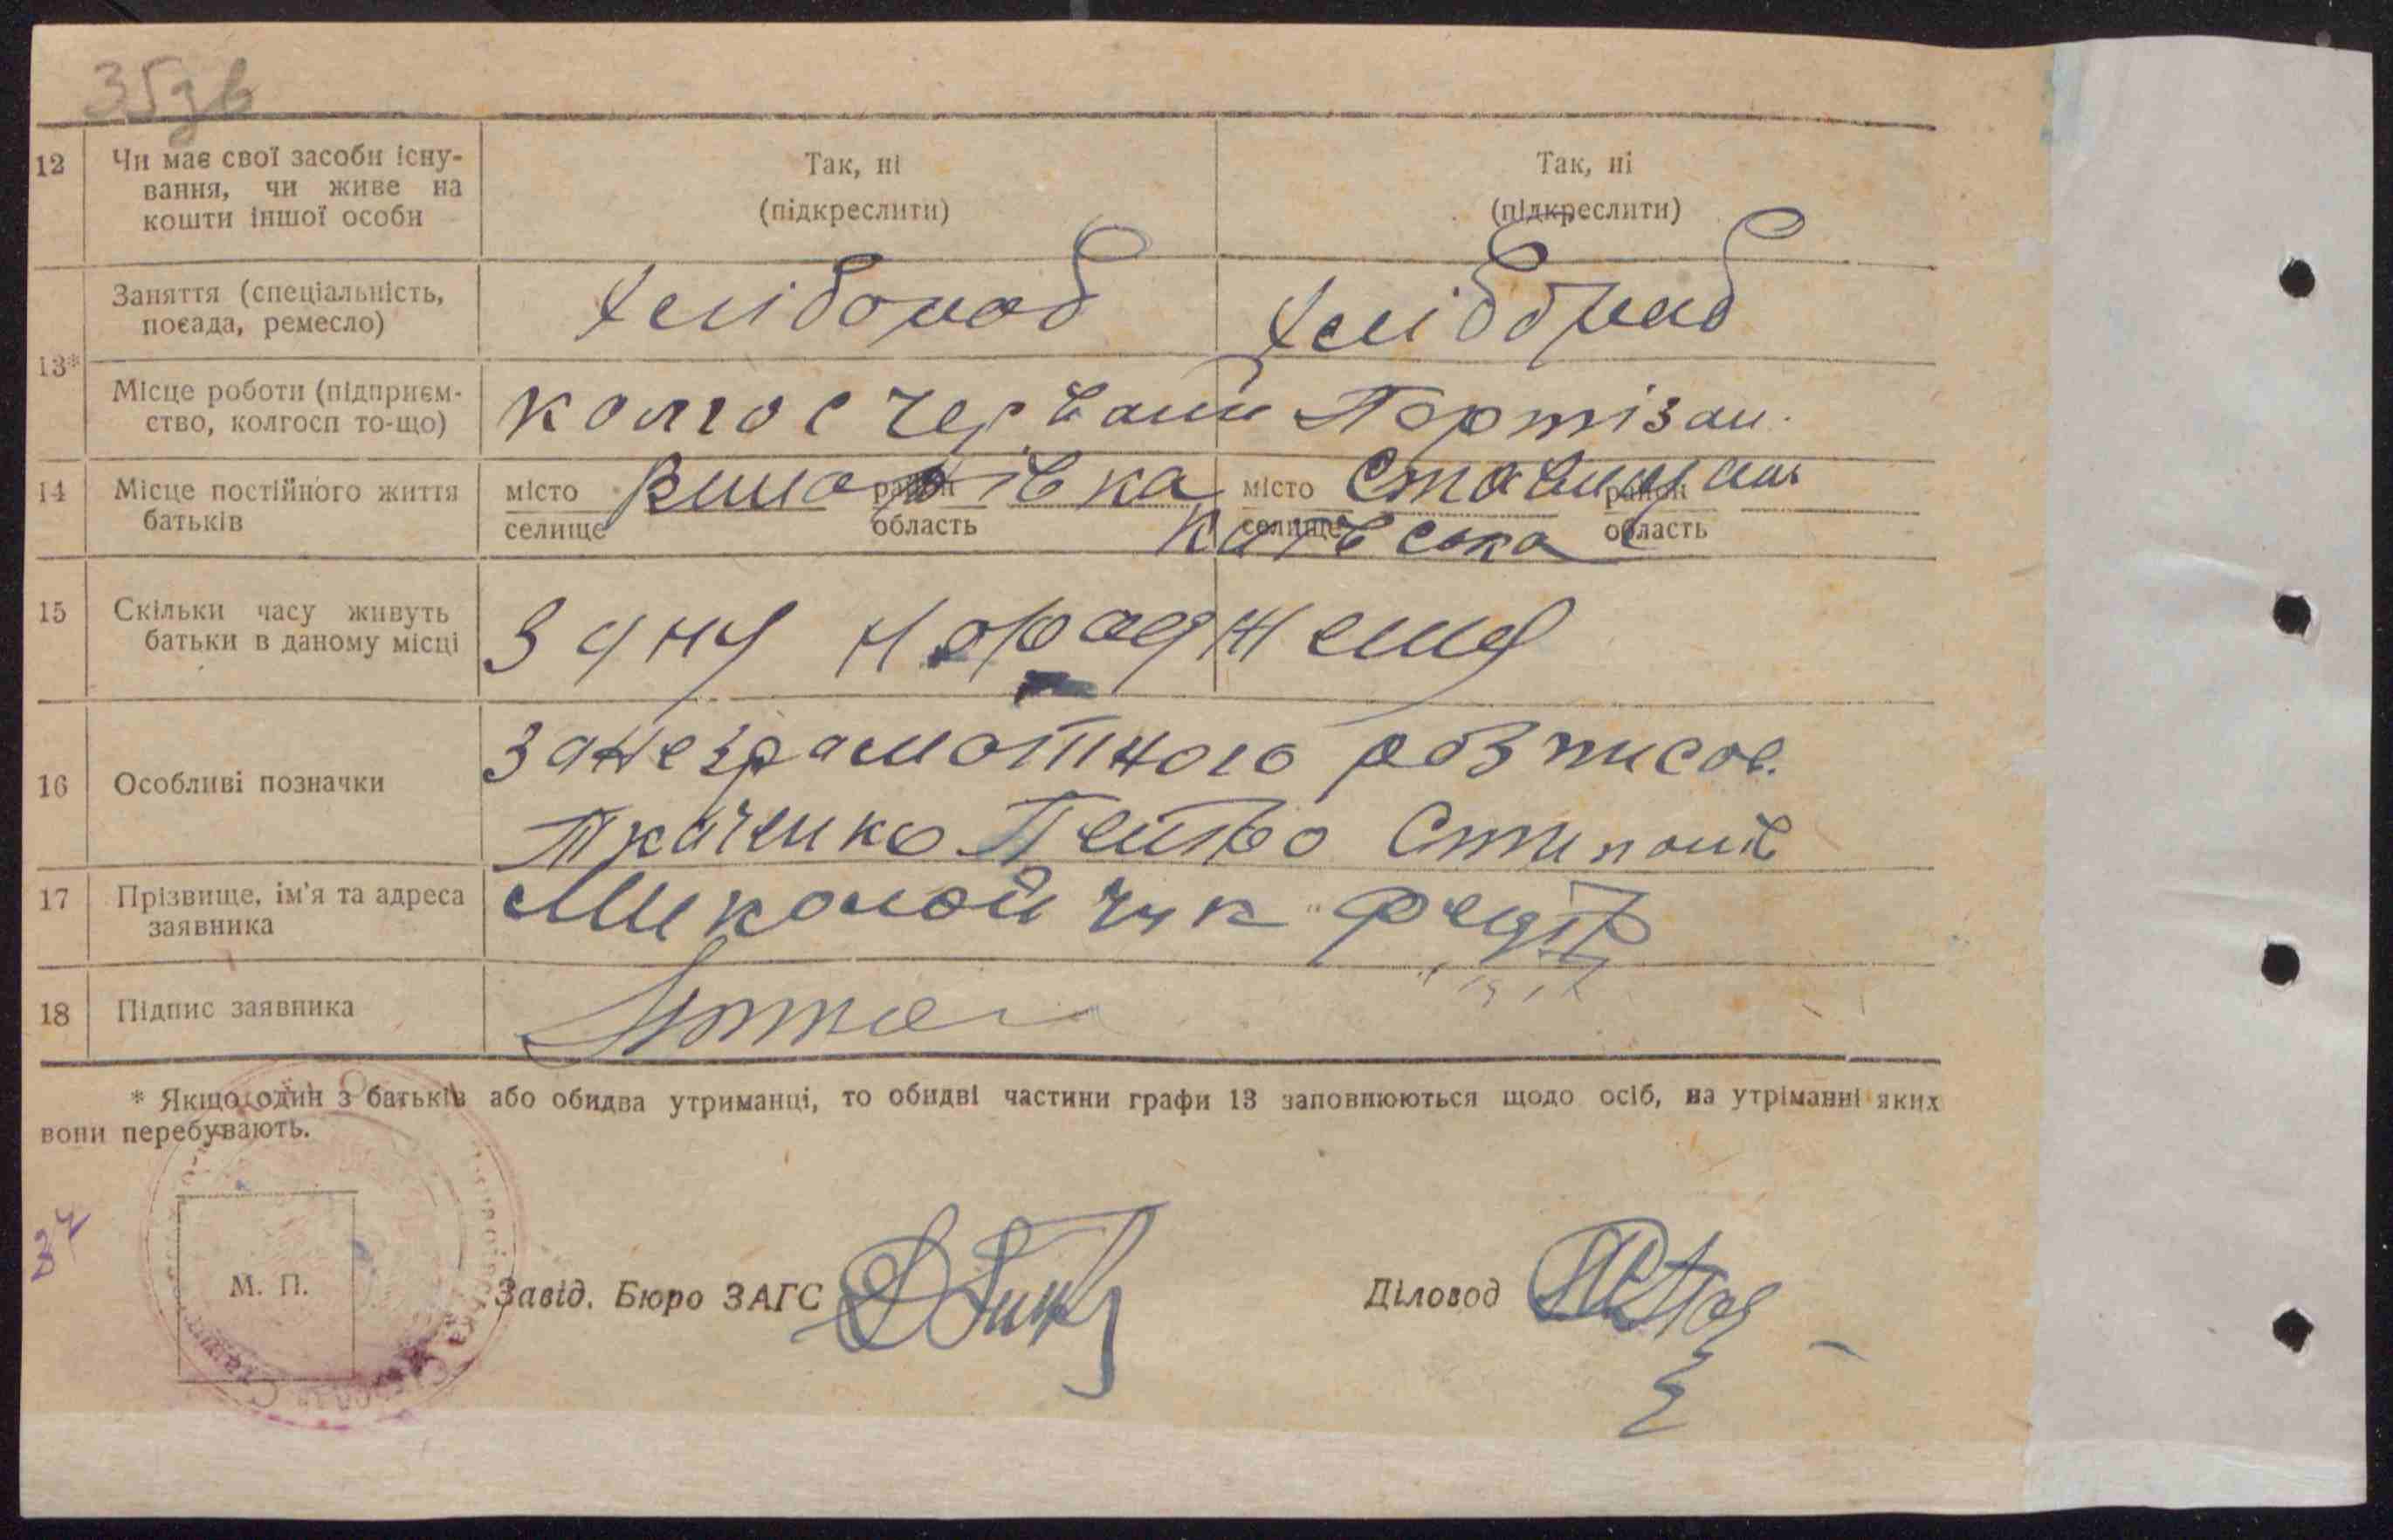 35зв
12 Чи має свої засоби існу-
вання, чи живе на
кошти іншої особи
Так, ні
(підкреслити)
Так, ні
(підкреслити)
13*
Заняття (спеціальність,
посада, ремесло)
Хлібороб Хлібороб
Місце роботи (підприєм-
ство, колгосп то-що)
колгос Червоний Портізан.
14 Місце постійного життя
батьків
місто район
селище область
місто район
селище область
15 Скільки часу живуть
батьки в даному місці
з дну народження
16 Особливі позначки
за неграмотного розписов.
Ткаченко
17 Прізвище, ім'я та адреса
заявника
Миколайчук Федір
18 Підпис заявника
* Якщо один з батьків або обидва утриманці, то обидві частини графи 13 заповнюються щодо осіб, на утріманні яких
вони перебувають.
34
М. П.
Завід. Бюро ЗАГС
Діловод